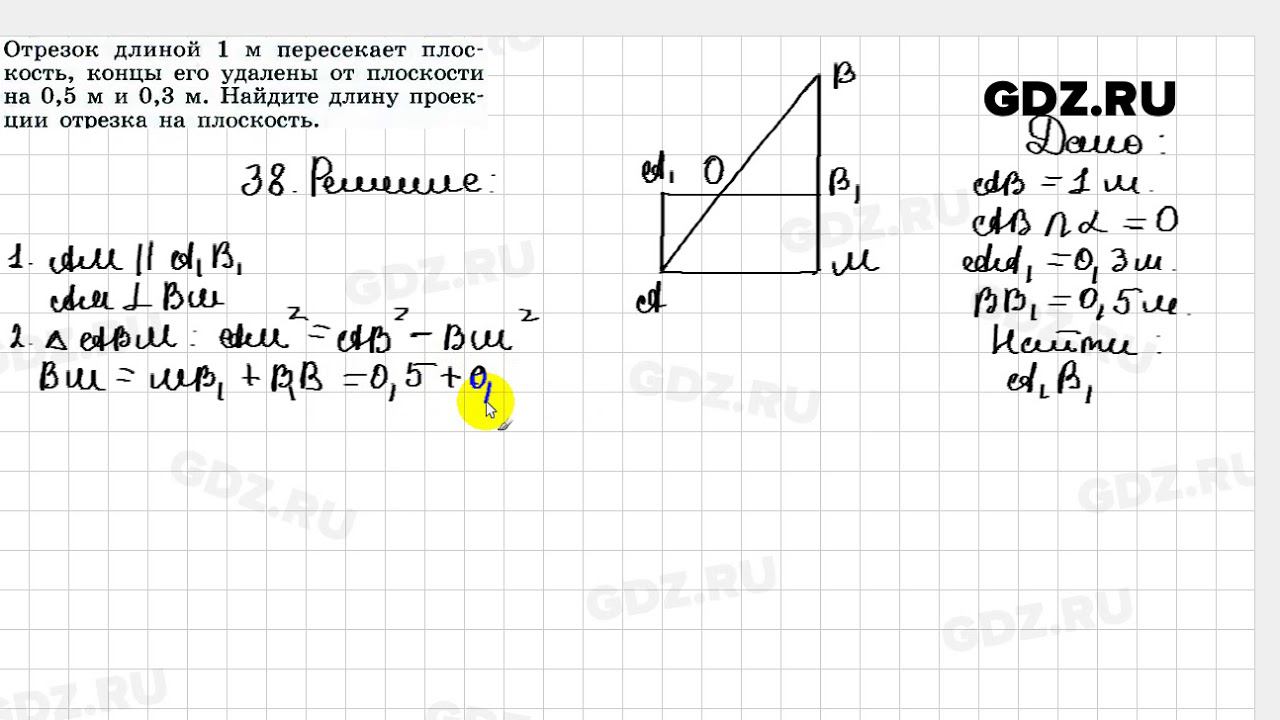 Отрезок длиной 1 м пересекает плос-
кость, концы его удалены от плоскости
на 0,5 м и 0,3 м. Найдите длину проек-
ции отрезка на плоскость.
38. Решение:
1. AM || A₁B₁
AM ⊥ BM
2. △ ABM: AM² = AB² - BM²
BM = MB₁ + B₁B = 0,5 + 0,
B
A₁ O B₁
A M
GDZ.RU
Дано:
AB = 1 м.
AB ∩ α = O
AA₁ = 0,3 м.
BB₁ = 0,5 м.
Найти:
A₁B₁
GDZ.RU
GDZ.RU
GDZ.RU
GDZ.RU
GDZ.RU
GDZ.RU
GDZ.RU